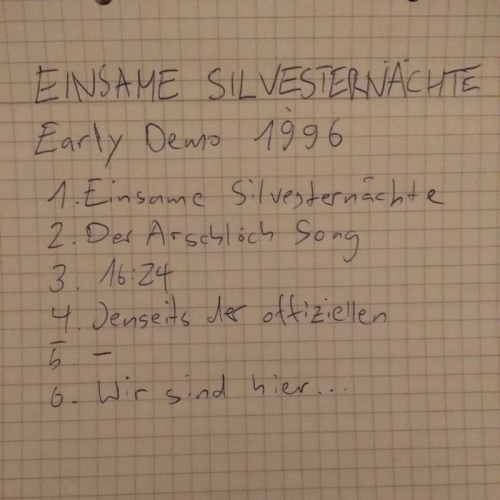 EINSAME SILVESTERNÄCHTE
Early Demo 1996
1. Einsame Silvesternächte
2. Der Arschloch Song
3. 16:24
4. Jenseits der offiziellen
5 -
6. Wir sind hier...